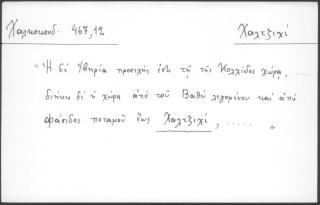 Χαλκοκονδ. 467,12 Χαλτζιχί
"Ἡ δὲ Ἰβηρία προσεχής ἐστι τῇ τῆς Κολχίδος χώρᾳ, ......
διήκει δὲ ἡ χώρα ἀπὸ τοῦ Βαθὺ λεγομένου καὶ ἀπὸ
Φάσιδος ποταμοῦ ἕως Χαλτζιχί, ......"